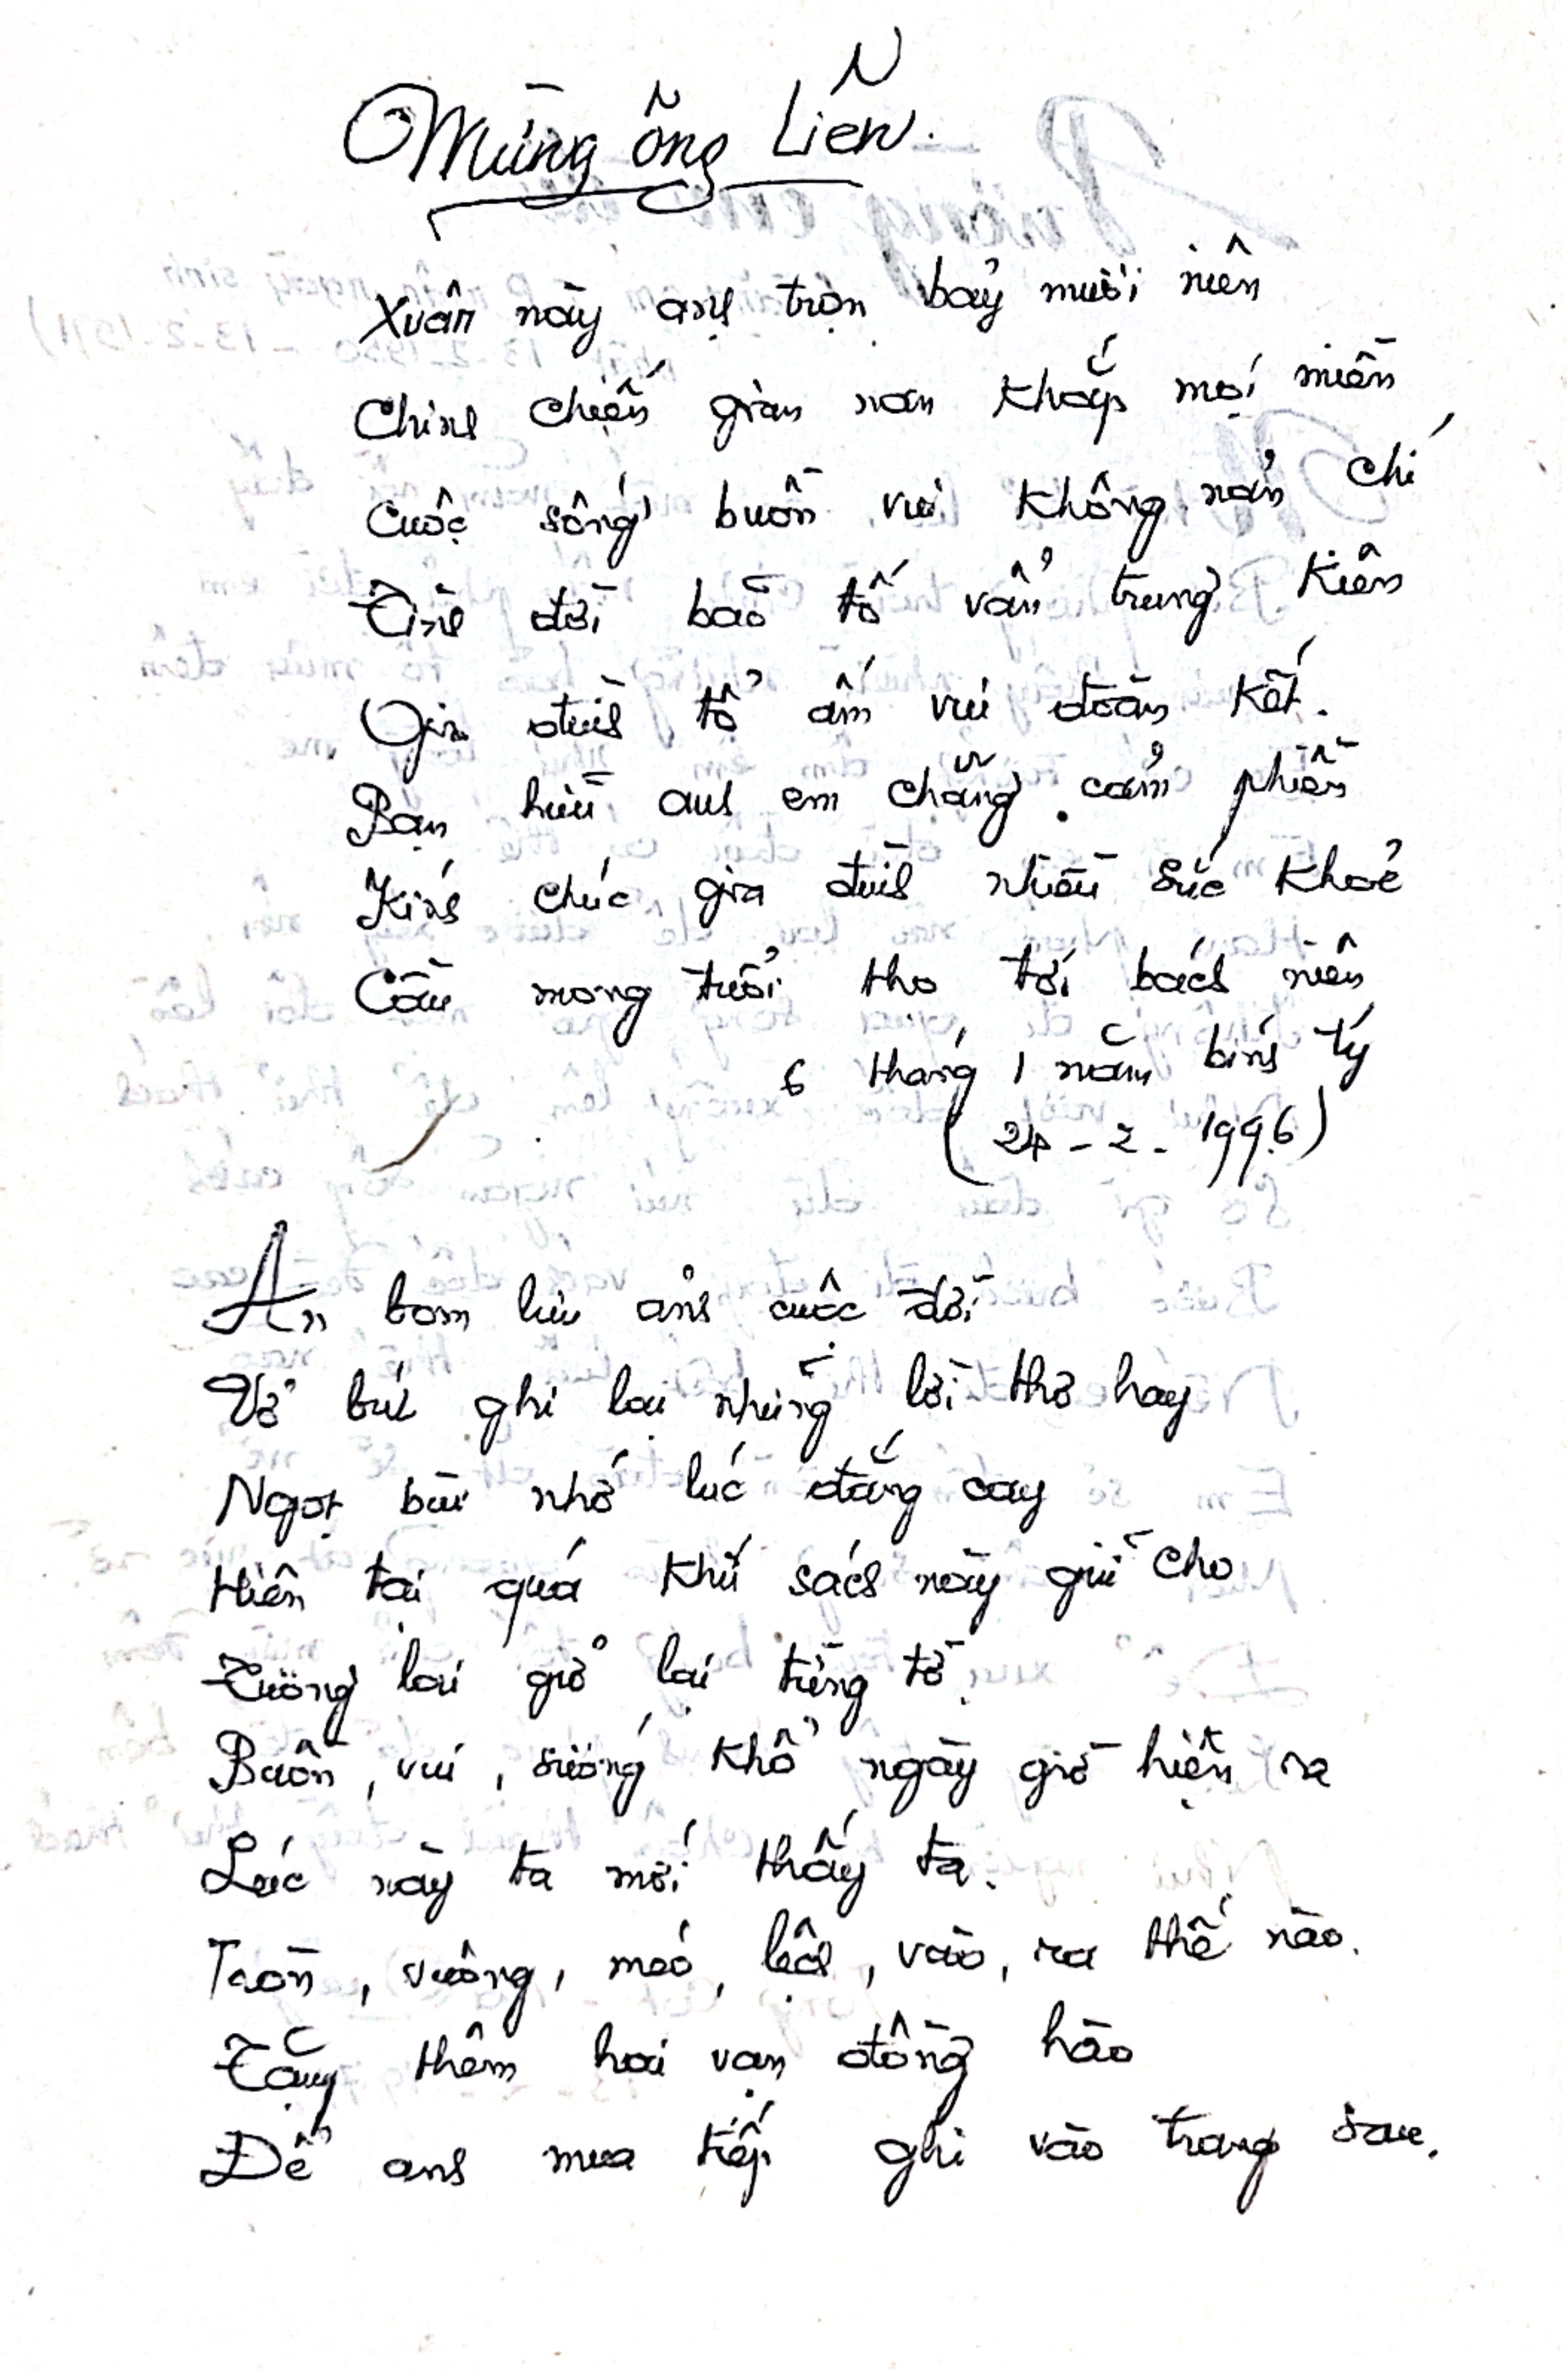 Mừng ông Liên.
Xuân này anh trọn bảy mươi niên
Chinh chiến gian nan khắp mọi miền
Cuộc sống buồn vui không nản chí
Tình đời bão tố vẫn trung kiên
Gia đình tổ ấm vui đoàn kết.
Bạn hữu anh em chẳng cảm phiền
Kính chúc gia đình nhiều sức khoẻ
Cầu mong tuổi thọ tới bách niên
6 tháng 1 năm bính tý
(24 - 2 - 1996)
An bom lưu ảnh cuộc đời
Vở bút ghi lại những lời thơ hay
Ngọt bùi nhớ lúc đắng cay
Hiện tại quá khứ sách này giữ cho
Tương lai giở lại từng tờ
Buồn, vui, sướng khổ ngày giờ hiện ra
Lúc này ta mới thấy ta.
Tròn, vuông, méo, lệch, vào, ra thế nào.
Tặng thêm hai vạn đồng hào
Để anh mua tiếp ghi vào trang sau.